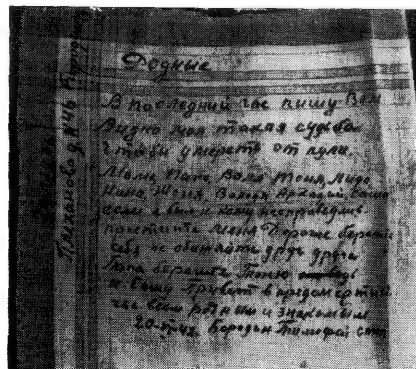 Родные
В последний час пишу Вам
Видно моя такая судьба
чтобы умереть от пули.
Мама, Папа Валя Тоня, Лида
Нина, Женя, Володя Аркадий
если я был к кому несправедлив
простите меня Дорогие берегите
себя не обижайте друг друга
Папа берегите Тоню ведь
я Вашу в предсмертный
час всем родным и знакомым
20- Бородин Тимофей
Плеханова д. №46